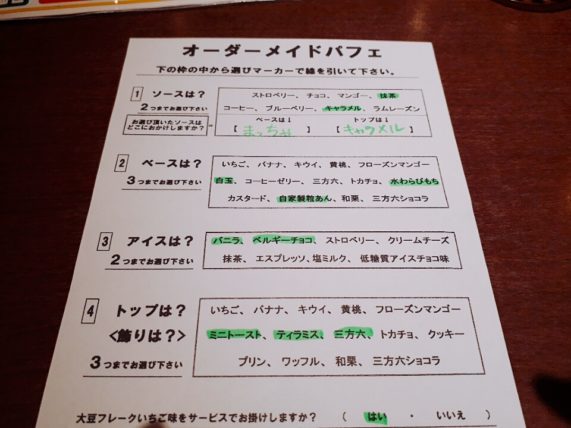 オーダーメイドパフェ
下の枠の中から選びマーカーで線を引いて下さい。
1 ソースは?
2つまでお選び下さい
ストロベリー、 チョコ、 マンゴー、 抹茶
コーヒー、 ブルーベリー、 キャラメル、 ラムレーズン
お選び頂いたソースは
どこにおかけしますか?
ベースは↓ トップは↓
[ まっちゃ ] [ キャラメル ]
2 ベースは?
3つまでお選び下さい
いちご、 バナナ、 キウイ、 黄桃、 フローズンマンゴー
白玉、 コーヒーゼリー、 三方六、 トカチョ、 水わらびもち
カスタード、 自家製粒あん、 和栗、 三方六ショコラ
3 アイスは?
2つまでお選び下さい
バニラ、 ベルギーチョコ、 ストロベリー、 クリームチーズ
抹茶、 エスプレッソ、塩ミルク、 低糖質アイスチョコ味
4 トップは?
<飾りは?>
3つまでお選び下さい
いちご、 バナナ、 キウイ、 黄桃、 フローズンマンゴー
ミニトースト、 ティラミス、 三方六、 トカチョ、 クッキー
プリン、 ワッフル、 和栗、 三方六ショコラ
大豆フレークいちご味をサービスでお掛けしますか? ( はい ・ いいえ )